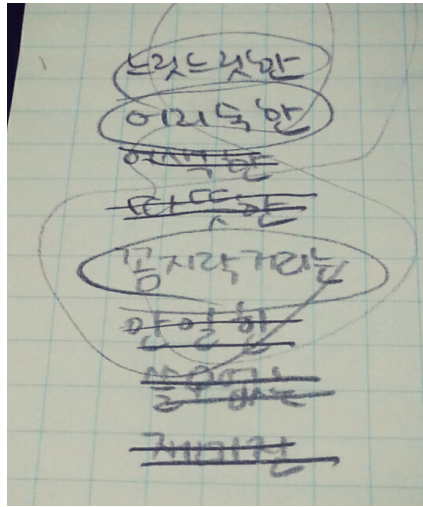 느릿느릿한
어리숙한
어색한
따뜻한
꼼지락거리는
안일한
쓸모있는
재미진